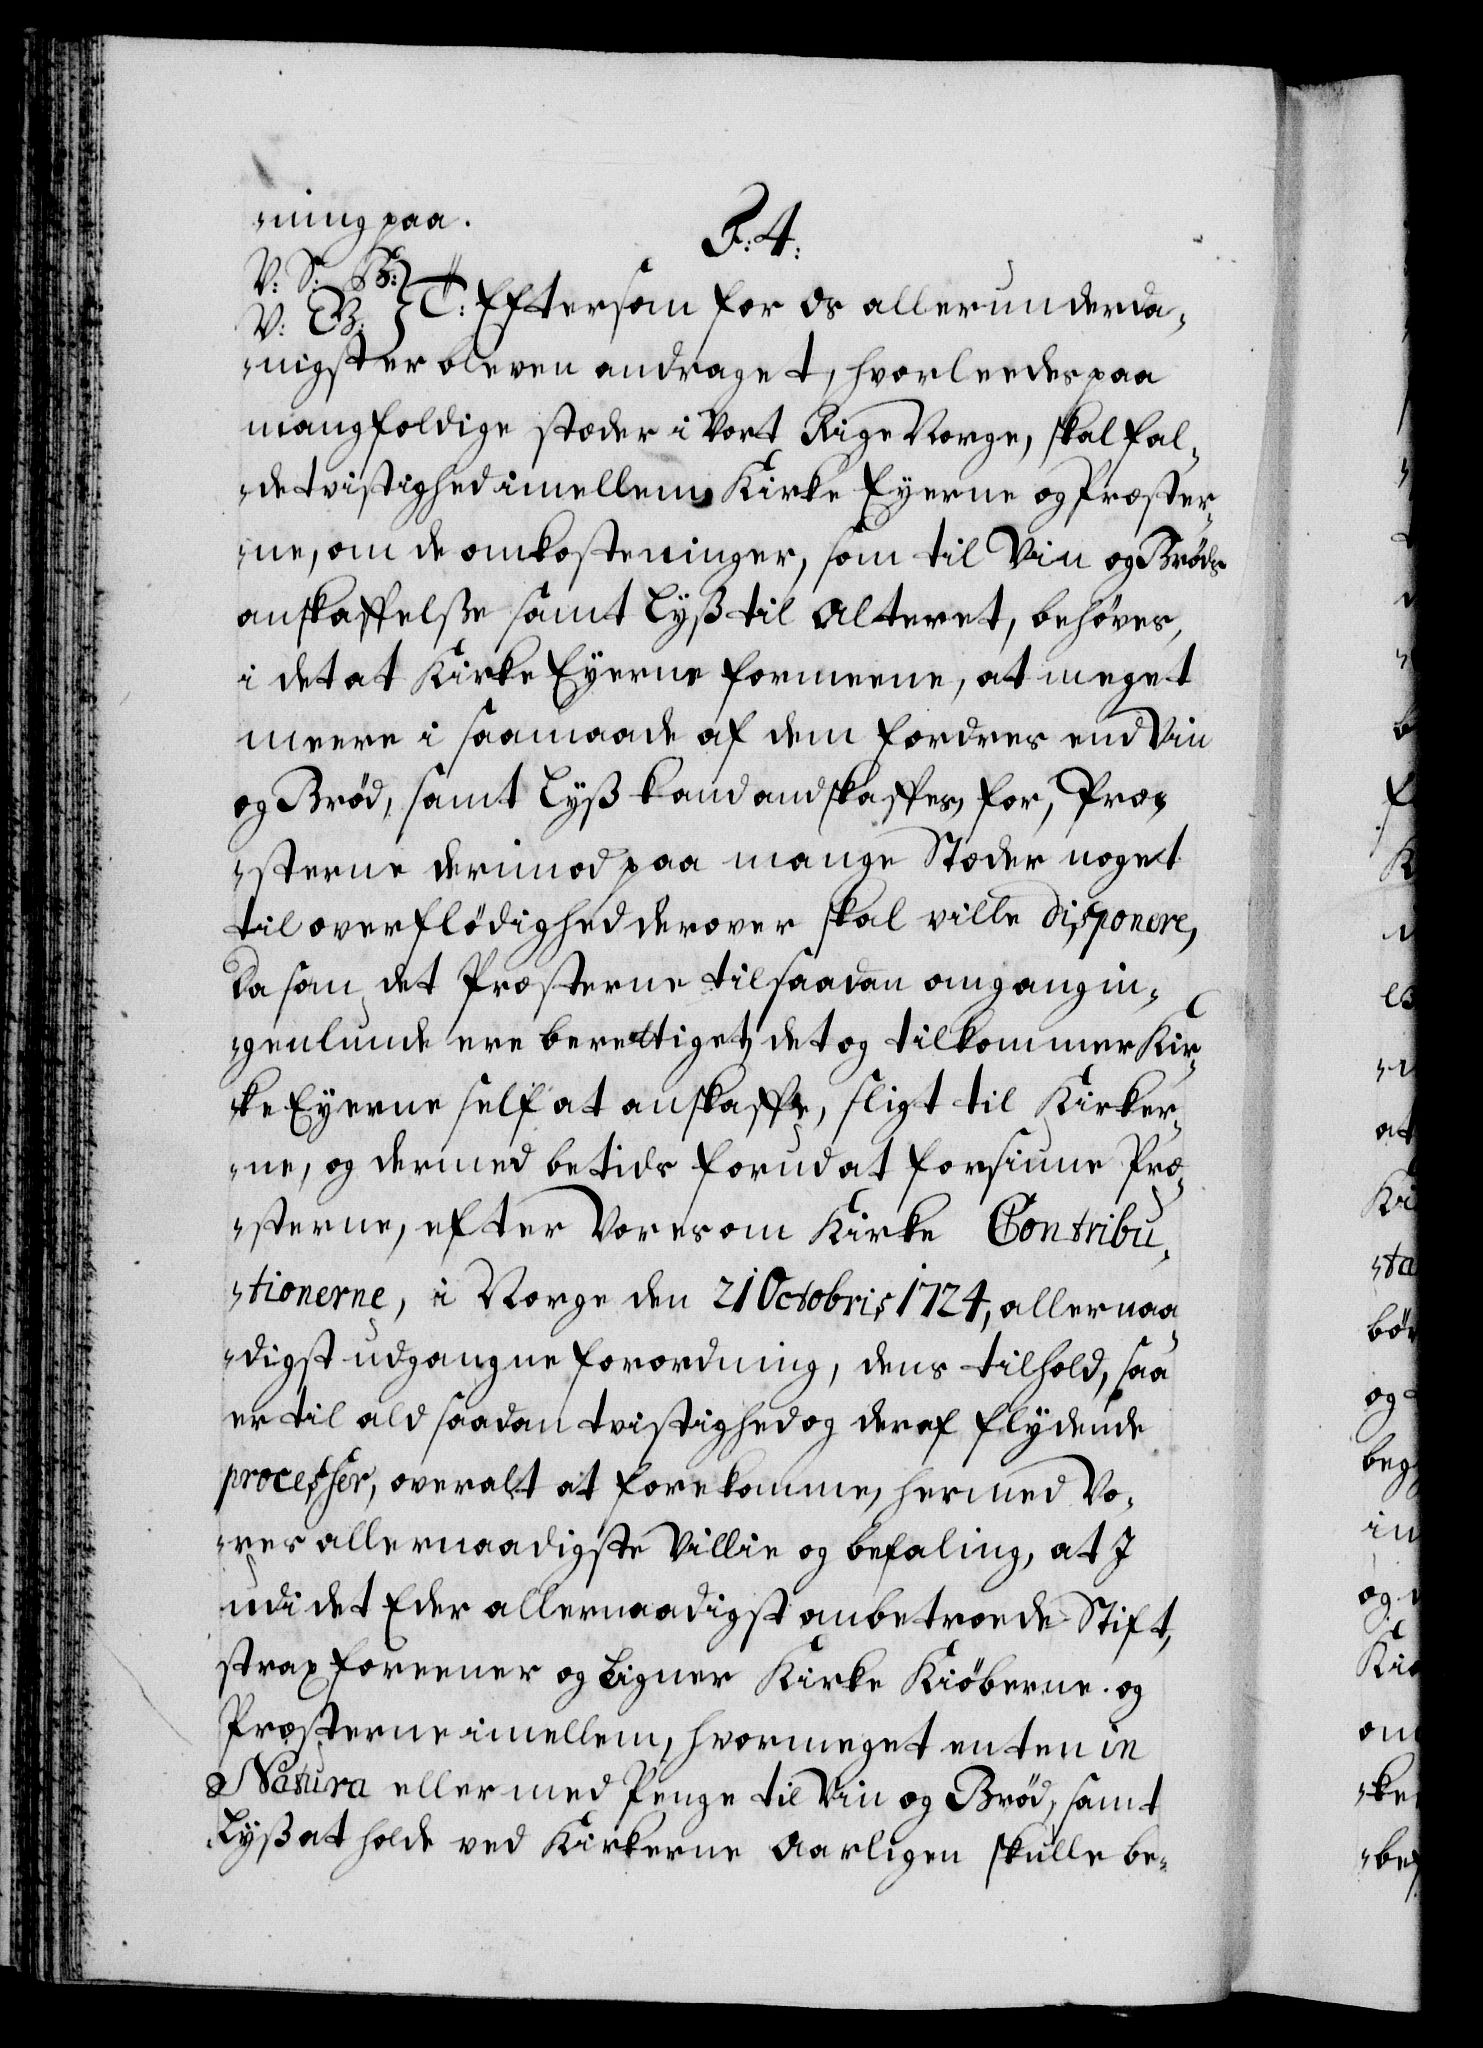 -ning paa.
F. 4.
V: S: B:
V: B: } T: Eftersom for Os allerunderda-
-nigst er bleven andraget, hvorleedes paa
mangfoldige stæder i Vort Rige Norge, skal fal-
-de tvistighed imellem Kirke Eyerne og Præster-
-ne, om de omkosteninger, som til Viin og Brøds
anskaffelse samt Lyß til Alteret, behøves,
i det at Kirke Eyerne formeene, at meget
meere i saamaade af dem fordres end Viin
og Brød, samt Lyß kand andskaffes, for, Præ-
-sterne derimod paa mange Stæder noget
til overflødighed derover skal ville disponere,
Da som det Præsterne til saadan omgang in-
-genlunde ere berettiget, det og tilkommer Kir-
-ke Eyerne self at anskaffe, sligt til Kirker-
-ne, og dermed betids forud at forsiune Præ-
-sterne, efter Vores om Kirke Contribu-
-tionerne, i Norge den 21 Octobris 1724, allernaa-
-digst udgangne forordning, dens tilhold, saa
er til ald saadan tvistighed og deraf flydende
processer, overalt at forekomme, hermed Vo-
-res allernaadigste Villie og befaling, at I
udi det Eder allernaadigst anbetroede Stift,
strax foreener og Ligner Kirke Kiøberne og
Præsterne imellem, hvormeget enten in
Natura eller med Penge til Viin og Brød, samt
Lyß at holde ved Kirkerne Aarligen skulle be-